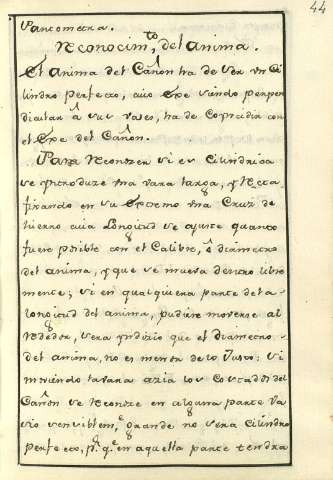 44
Pantometra.
Reconocim.to del anima.
El anima del Cañon ha de ser un Ci
lindro perfecto, cuio Exe siendo perpen
dicular â sus vases, ha de Coincidir con
el Exe del Cañon.
Para reconozer si es Cilindrica
se introduze una vara larga, y recta
fixando en su Extremo una Cruz de
hierro cuia Longitud se ajuste quanto
fuere posible con el Calibre, ô diametro
del anima, y que se mueva dentro libre
mente; si en qualquiera parte de la
longitud del anima, pudiere moverse al
rededor, sera yndizio que el diametro
del anima, no es menor de lo Justo: si
moviendo la vara azia los Costados del
Cañon se reconoze en alguna parte va
rio sensiblem.e grande no sera Cilindro
perfecto, p.r q.e en aquella parte tendra